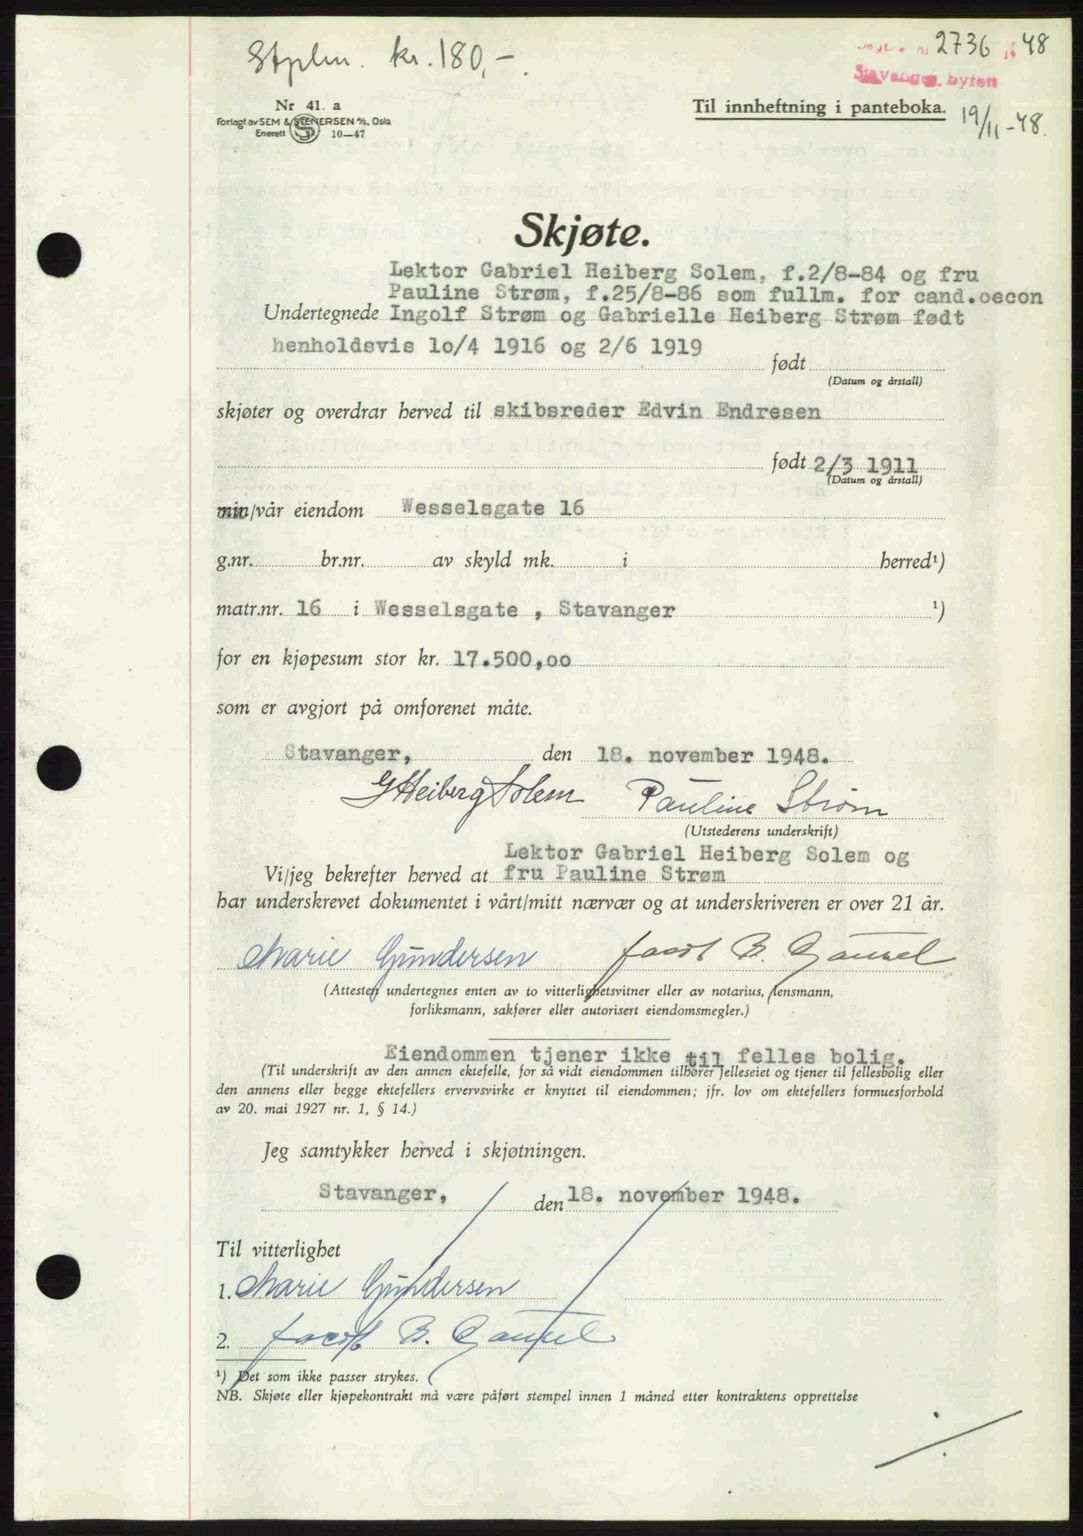 Stplm. kr. 180,-.
2736 48
Stavanger byfett
Nr 41. a
Forlagt av SEM & STENERSEN A/S, Oslo
Enerett 10-47
Til innheftning i panteboka.
19/11-48.
Skjøte.
Lektor Gabriel Heiberg Solem, f.2/8-84 og fru
Pauline Strøm, f.25/8-86 som fullm. for cand.oecon
Undertegnede Ingolf Strøm og Gabrielle Heiberg Strøm født
henholdsvis 1o/4 1916 og 2/6 1919
født
(Datum og årstall)
skjøter og overdrar herved til skibsreder Edvin Endresen
født 2/3 1911
(Datum og årstall)
min/vår eiendom Wesselsgate 16
g.nr. br.nr. av skyld mk. i herred¹)
matr.nr. 16 i Wesselsgate , Stavanger ¹)
for en kjøpesum stor kr. 17.500,oo
som er avgjort på omforenet måte.
Stavanger, den 18. november 1948.
G Heiberg Solem Pauline Strøm
(Utstederens underskrift)
Lektor Gabriel Heiberg Solem og
Vi/jeg bekrefter herved at fru Pauline Strøm
har underskrevet dokumentet i vårt/mitt nærvær og at underskriveren er over 21 år.
Marie Gundersen Jacob B. Gausel
(Attesten undertegnes enten av to vitterlighetsvitner eller av notarius, lensmann,
forliksmann, sakfører eller autorisert eiendomsmegler.)
Eiendommen tjener ikke til felles bolig.
(Til underskrift av den annen ektefelle, for så vidt eiendommen tilhører felleseiet og tjener til fellesbolig eller
den annens eller begge ektefellers ervervsvirke er knyttet til eiendommen; jfr. lov om ektefellers formuesforhold
av 20. mai 1927 nr. 1, § 14.)
Jeg samtykker herved i skjøtningen.
Stavanger, den 18. november 1948.
Til vitterlighet
1. Marie Gundersen
2. Jacob B. Gausel
¹) Det som ikke passer strykes.
NB. Skjøte eller kjøpekontrakt må være påført stempel innen 1 måned etter kontraktens opprettelse